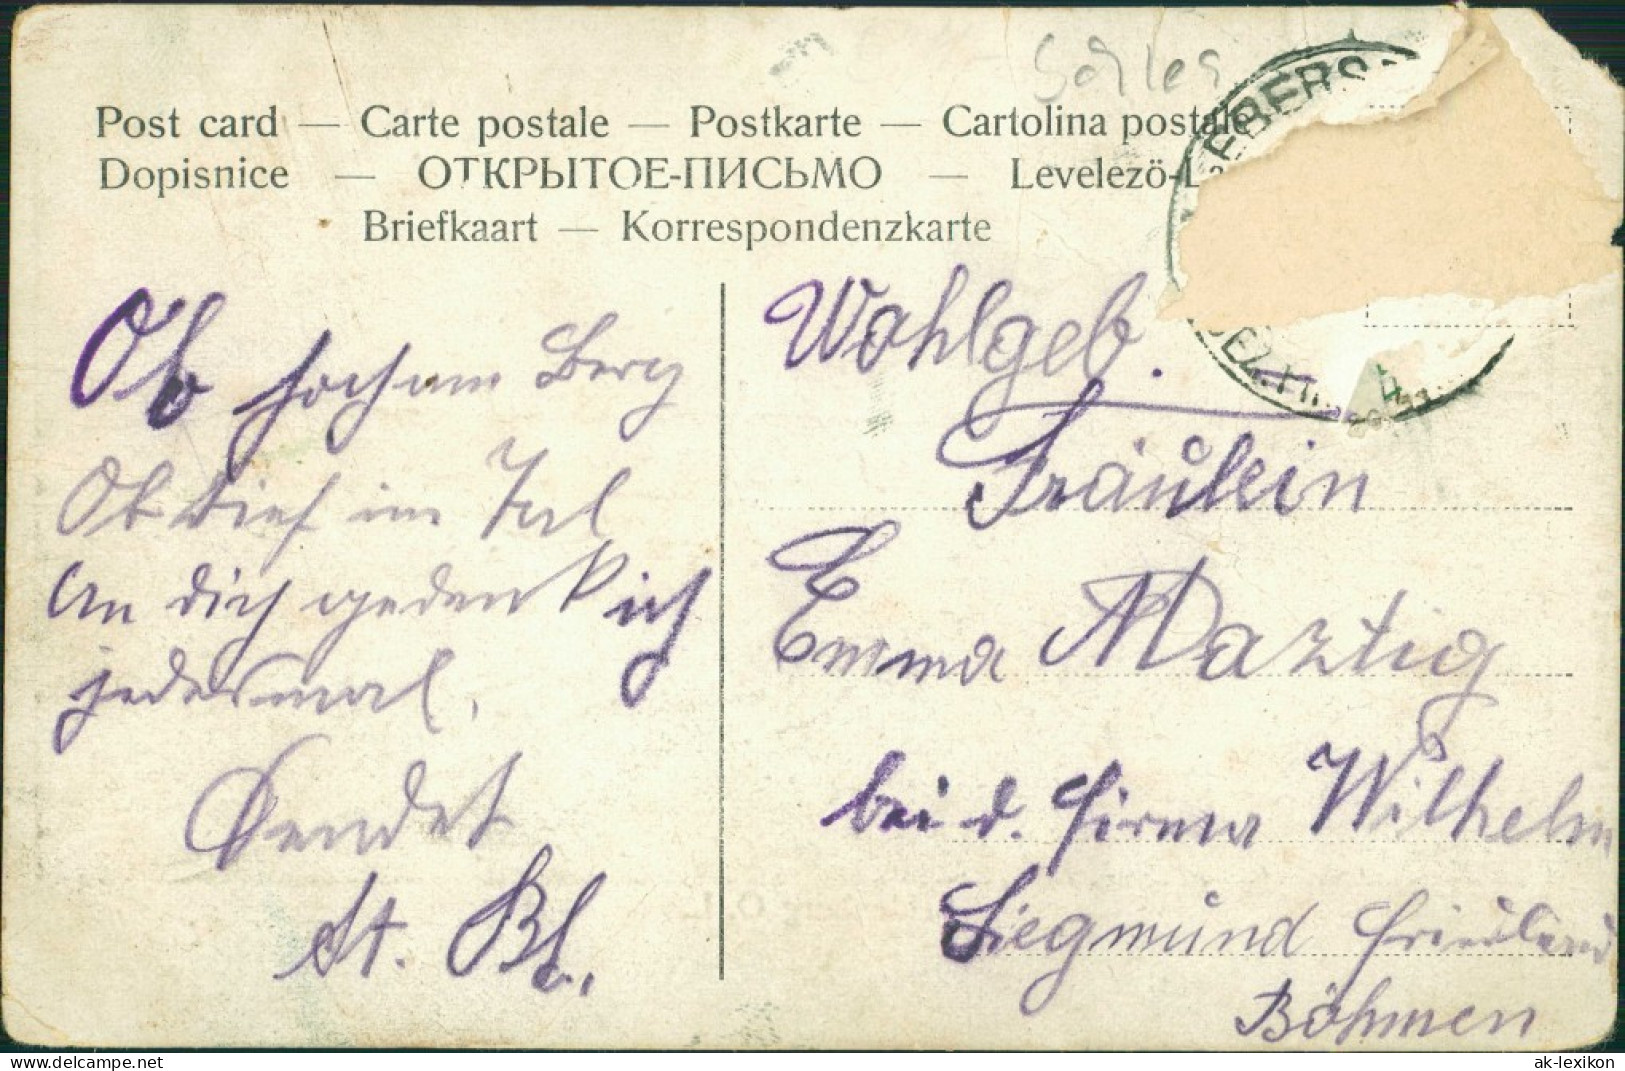 Post card — Carte postale — Postkarte — Cartolina postale
Dopisnice — ОТКРЫТОЕ-ПИСЬМО — Levelezö-L
Briefkaart — Korrespondenzkarte
EBERS
BEZ.
Ob hoch am Berg
Ob tief im Tal
An dich gedenk ich
jedesmal.
Sendet
St. Bl.
Wohlgeb.
Fräulein
Emma Maztig
bei d. Firma Wilhelm
Siegmund Friedland
Böhmen
www.delcampe.net
ak-lexikon